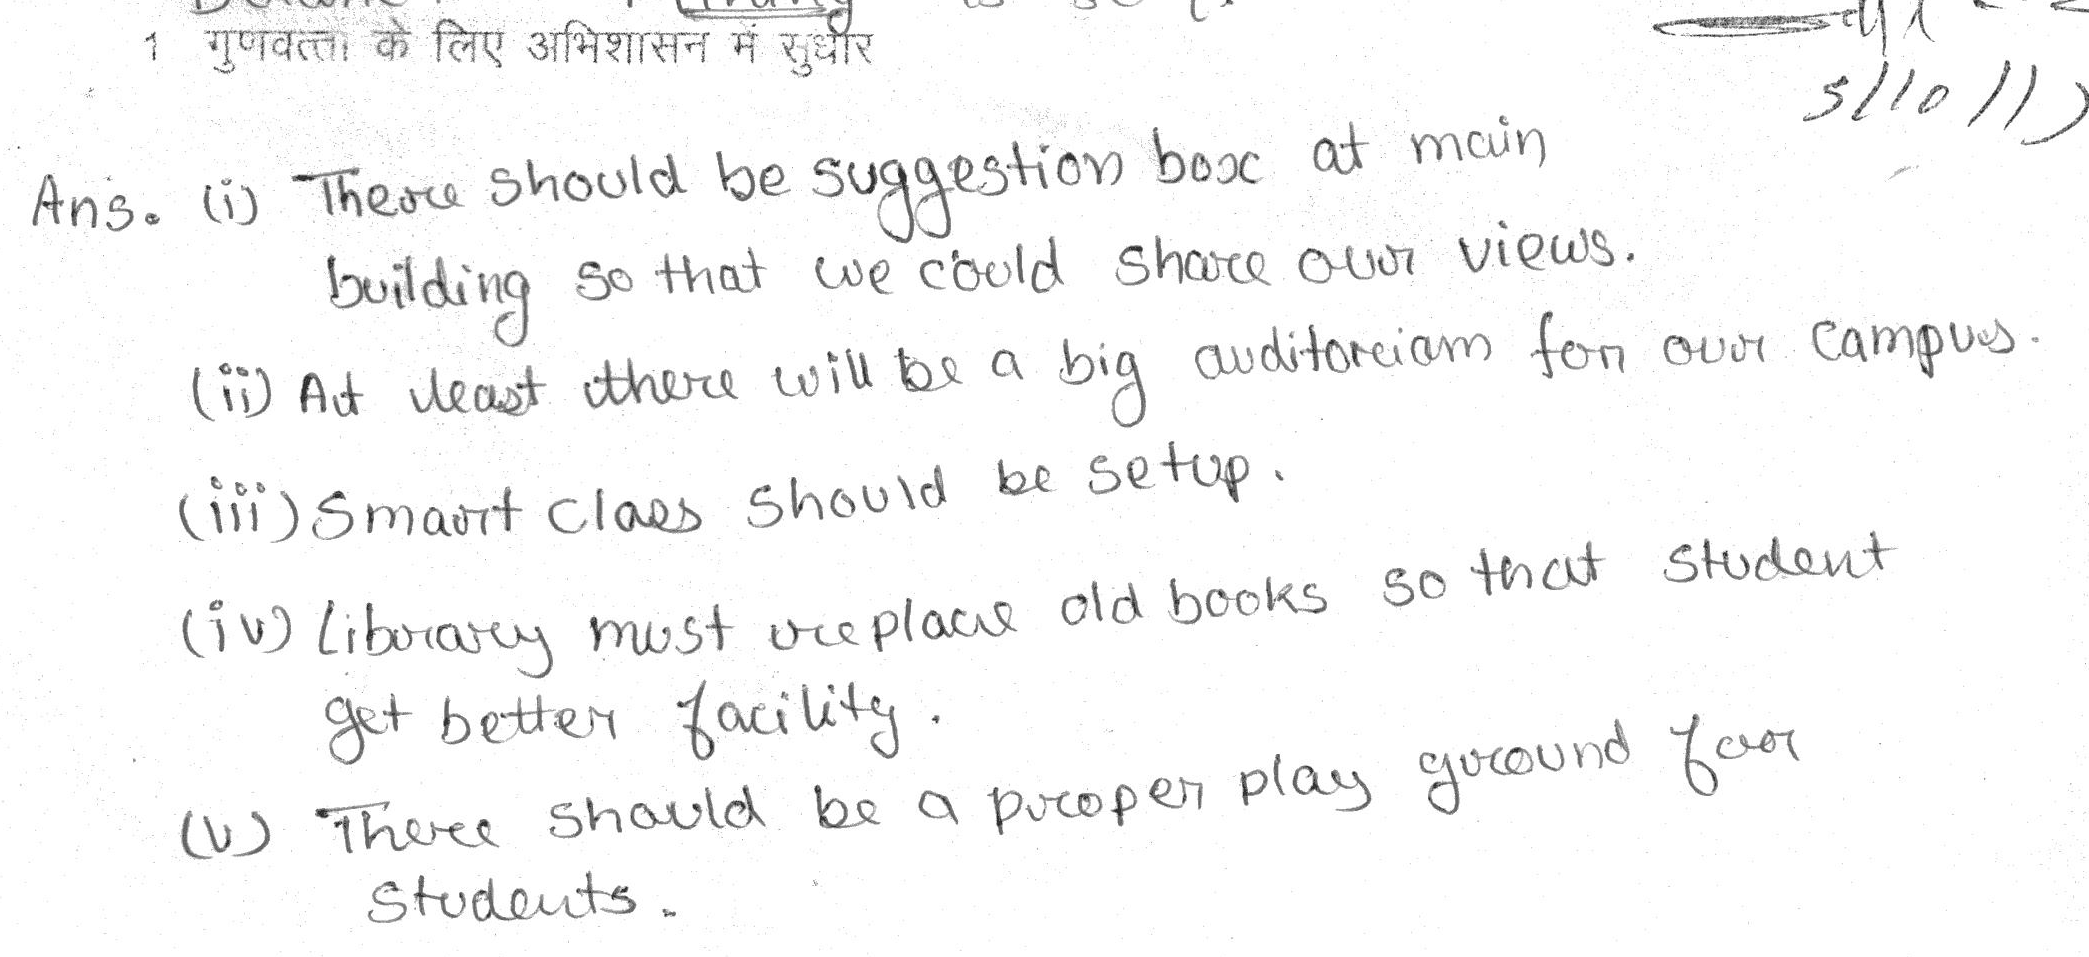 1 गुणवत्ता के लिए अभिशासन में सुधार
Ans. (i) There should be suggestion box at main
building so that we could share our views.
(ii) At least there will be a big auditoreiam for our campus.
(iii) Smart class should be setup.
(iv) Library must replace old books so that student
get better facility.
(v) There should be a proper play ground for
students.